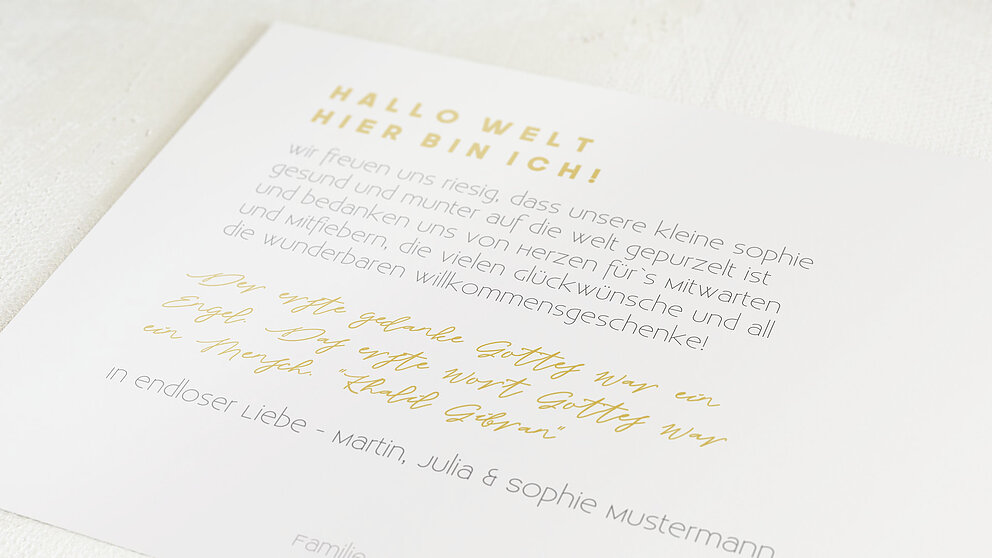 HALLO WELT
HIER BIN ICH!
wir freuen uns riesig, dass unsere kleine sophie
gesund und munter auf die welt gepurzelt ist
und bedanken uns von Herzen für`s Mitwarten
und Mitfiebern, die vielen Glückwünsche und all
die wunderbaren willkommensgeschenke!
Der erste gedanke Gottes war ein
Engel. Das erste Wort Gottes war
ein Mensch. "Khalil Gibran"
in endloser Liebe - Martin, Julia & sophie Mustermann
Familie